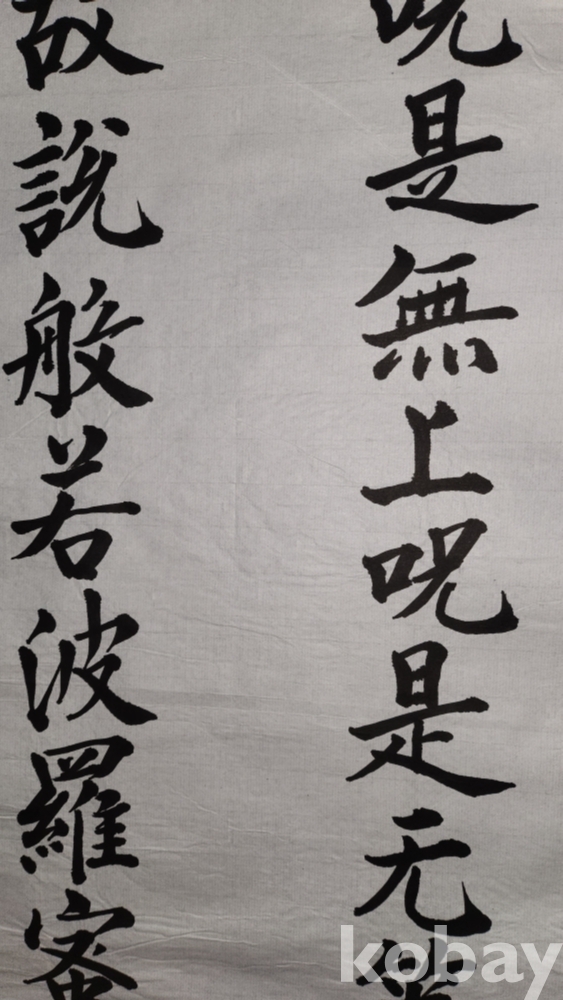 呪是無上呪是无
故說般若波羅蜜
kobay